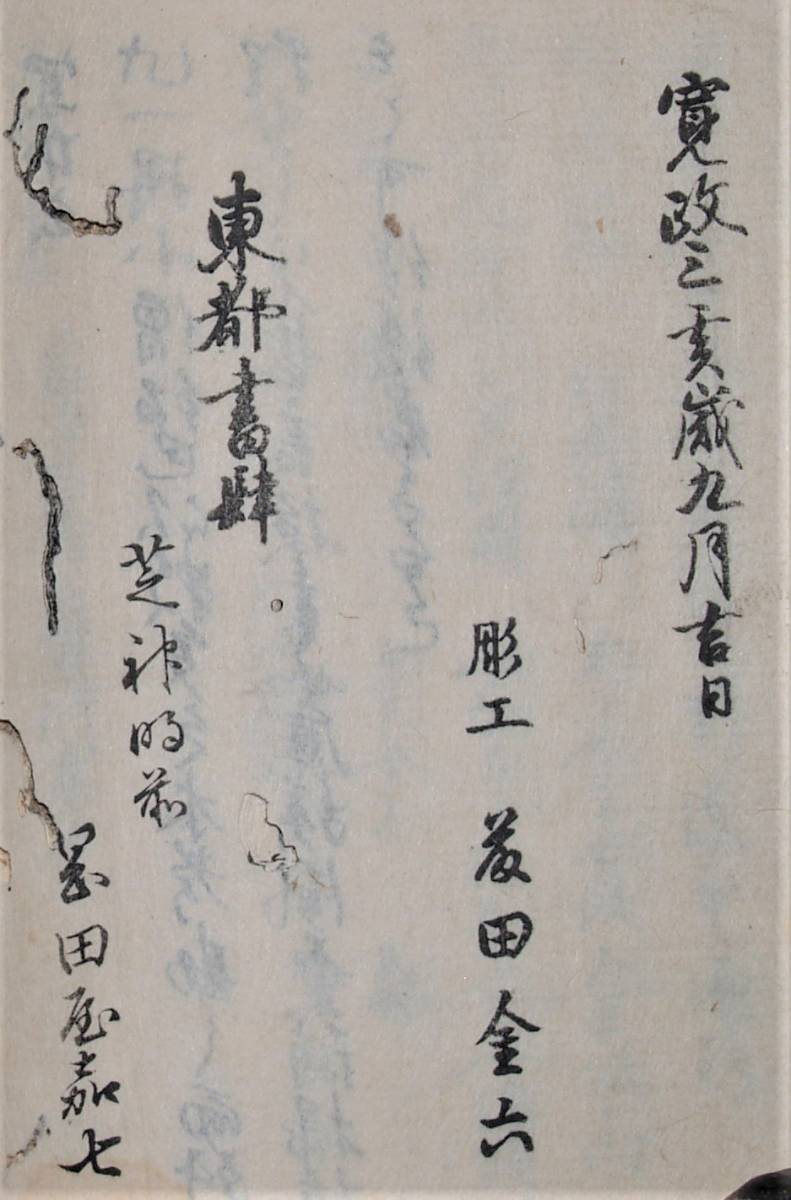 寛政三亥歳九月吉日
彫工 藤田金六
東都書肆
芝神明前
岡田屋嘉七